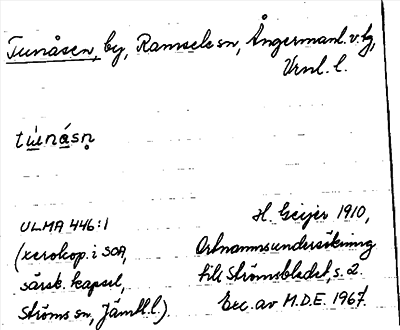 Tunåsen, by, Ramsele sn, Ångermanl. v. tg,
Vrnl. l.
tu̲násn̥
ULMA 446:1
(xerokop. i SOA,
särsk. kapsel,
Ströms sn, Jämtl. l.).
H. Geijer 1910,
Ortnamnsundersökning
till Strömsbladet, s. 2.
Exc. av M.D.E. 1967.